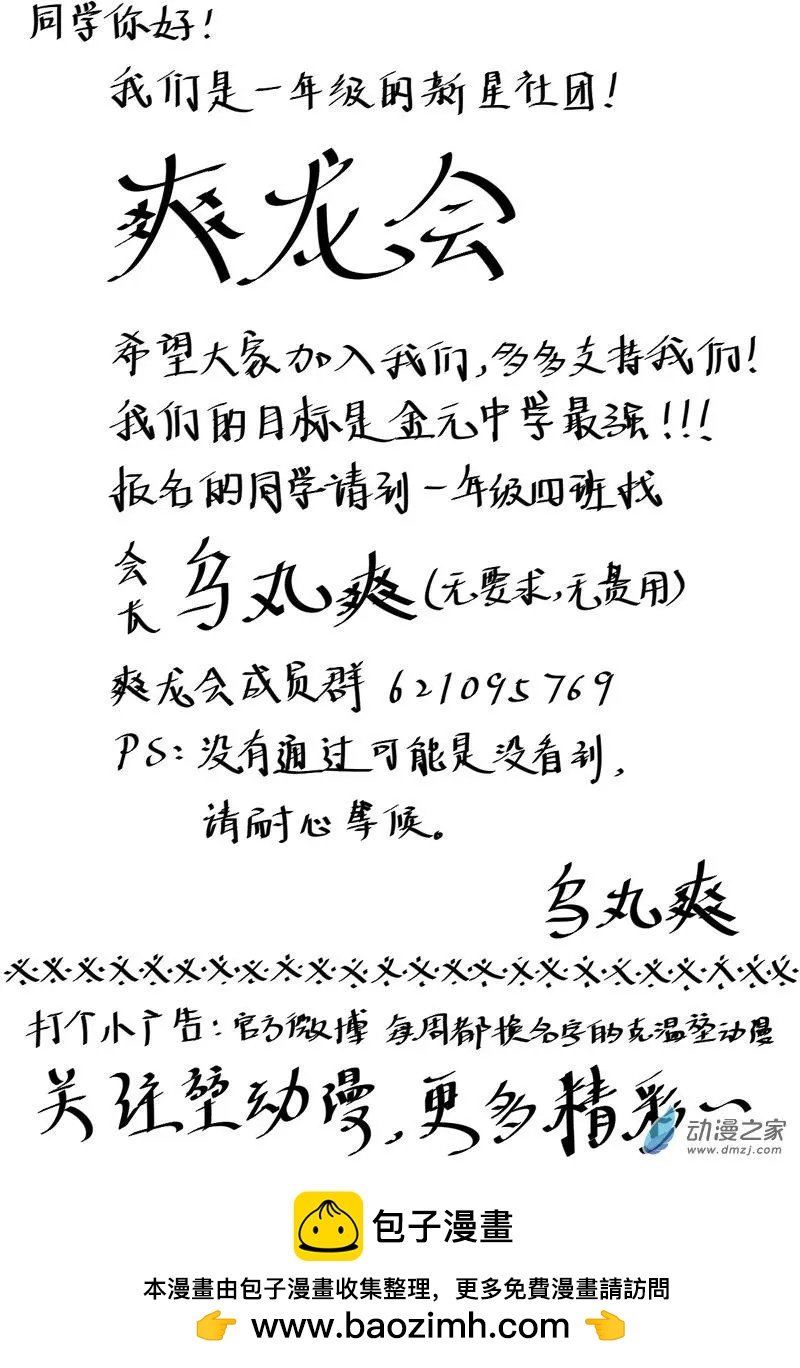 同学你好!
我们是一年级的新星社团!
爽龙会
希望大家加入我们,多多支持我们!
我们的目标是金元中学最强!!!
报名的同学请到一年级四班找
会长 乌丸爽(无要求,无费用)
爽龙会成员群 621095769
PS:没有通过可能是没看到,
请耐心等候。
乌丸爽
打个小广告:官方微博 每周都换名字的克温堃动漫
关注堃动漫,更多精彩~
动漫之家
www.dmzj.com
包子漫畫
本漫畫由包子漫畫收集整理,更多免費漫畫請訪問
👉 www.baozimh.com 👈